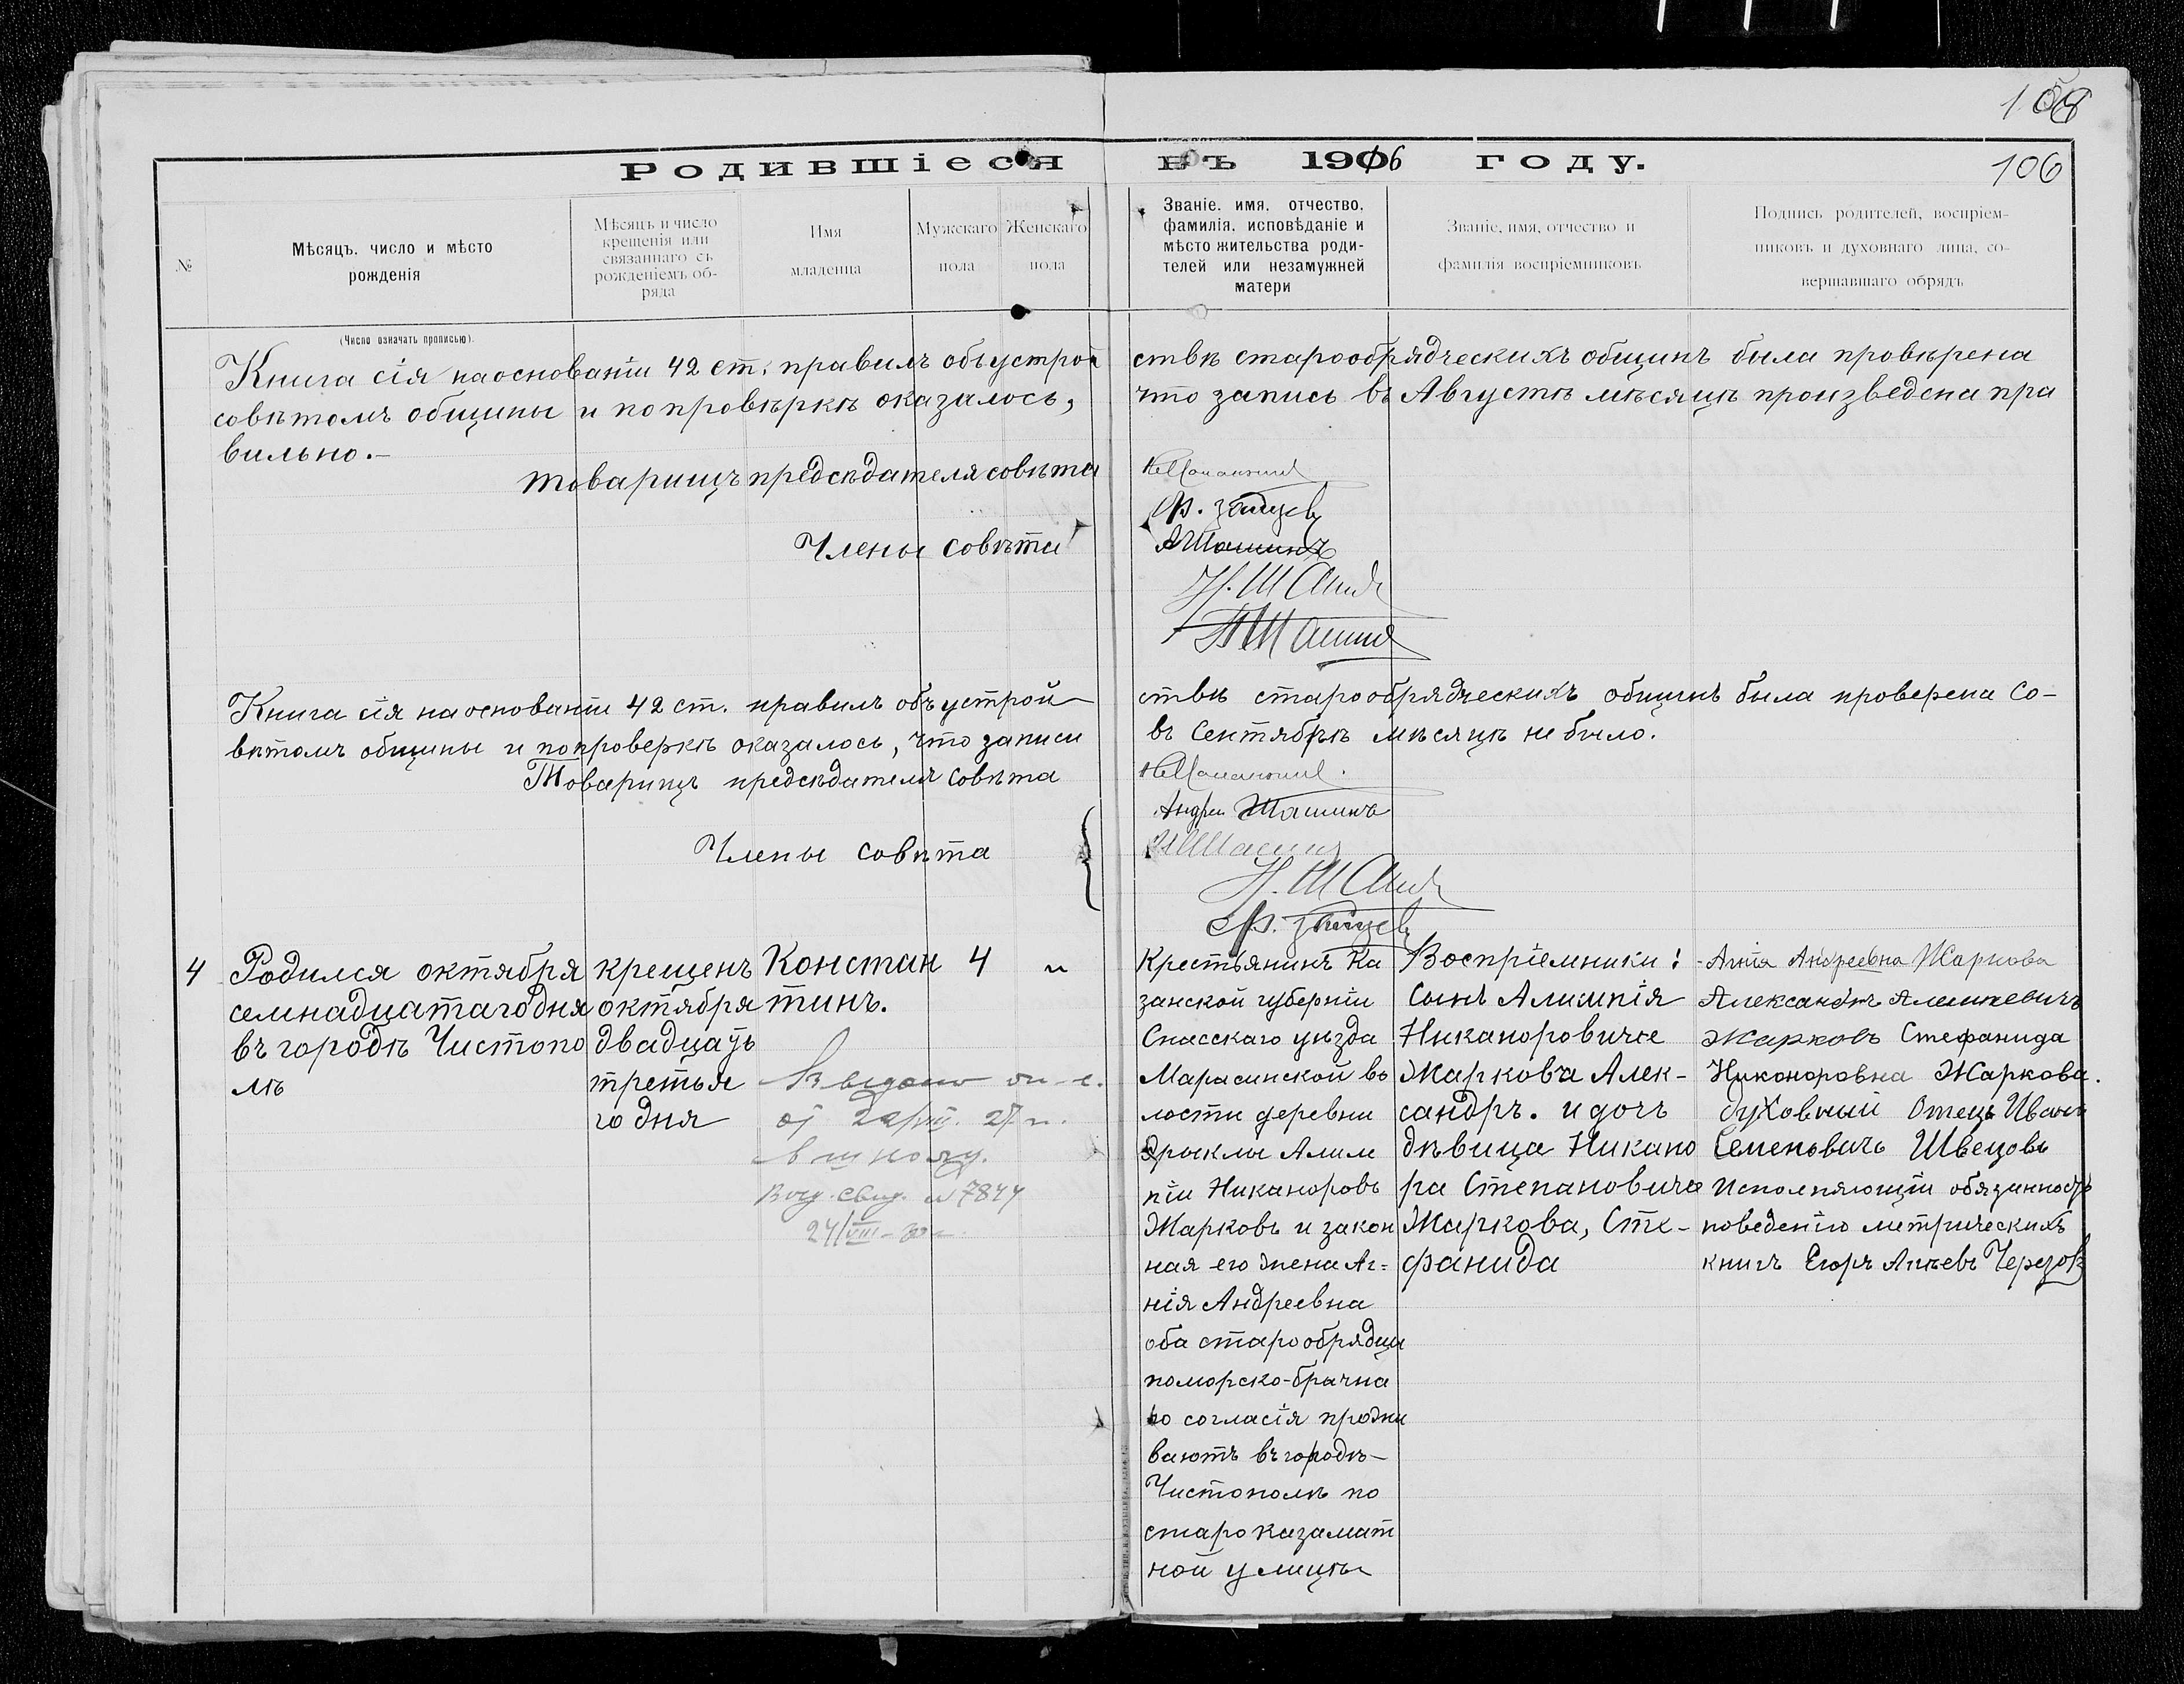 106
Родившіеся въ 1906 году.
106
№
Мѣсяцъ, число и мѣсто
рожденія
(Число означать прописью).
Мѣсяцъ и число
крещенія или
связаннаго съ
рожденіемъ об-
ряда
Имя
младенца
Мужскаго
пола
Женскаго
пола
Званіе, имя, отчество,
фамилія, исповѣданіе и
мѣсто жительства роди-
телей или незамужней
матери
Званіе, имя, отчество и
фамилія воспріемниковъ
Подпись родителей, воспріем-
никовъ и духовнаго лица, со-
вершавшаго обрядъ
Книга сія на основаніи 42 ст. правилъ объ устрой ствѣ старообрядческихъ общинъ была провѣрена
совѣтомъ общины и по провѣркѣ оказалось, что запись въ Августѣ мѣсяцѣ произведена пра
вильно.-
товарищъ предсѣдателя совѣта
Ф. Зайцевъ
Члены совѣта
АШашинъ
Н. Ш
Шашинъ
Книга сія на основаніи 42 ст. правилъ объ устрой ствѣ старообрядческихъ общинъ была проверена Со-
вѣтомъ общины и по проверкѣ оказалось, что записи въ Сентябрѣ мѣсяцѣ не было.
Товарищъ предсѣдателя Совѣта
Андрей Шашинъ
Члены совѣта
Шашинъ
Н. Ш
Ф. Зайцевъ
4
Родился октября
семнадцатаго дня
въ городѣ Чистопо
лѣ
крещенъ
октября
двадцать
третья
го дня
Констан
тинъ.
4
"
от
в школу.
свид. № 7844
24/VIII-
Крестьянинъ Ка
занской губерніи
Спасскаго уѣзда
Марасинской во
лости деревни
Алим
піи Никаноровъ
Жарковъ и закон
ная его жена Аг=
нія Андреевна
оба старообрядцы
поморско-брачна
го согласія прожи
ваютъ въ городѣ-
Чистополѣ по
старо казамат
ной улицы
Воспріемники:
Сынъ Алимпія
Никаноровича
Жаркова Алек-
сандръ. и дочь
дѣвица Никано
ра Степановича
Жаркова, Сте-
фанида
Агнія Андреевна Жаркова
Александръ Алимпевичъ
Жарковъ Стефанида
Никоноровна Жаркова.
духовный Отецъ Иванъ
Семеновичъ Швецовъ
Исполняющій обязанность
поведенію метрическихъ
книгъ Егоръ